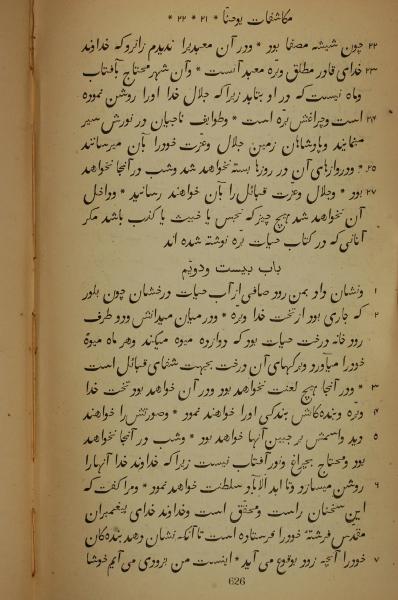 مکاشفات یوحنّا * ۲۱ * ۲۲ *
۲۲ چون شیشه مصفا بود * ودر آن معبدیرا ندیدم زانرو که خداوند
۲۳ خدای قادر مطلق وبرّه معبد آنست * وآن شهر محتاج بآفتاب
وماه نیست که در او بتابد زیرا که جلال خدا اورا روشن نموده
۲۴ است وچراغش برّه است * وطوایف ناجیان در نورش سیر
مینمایند وپادشاهان زمین جلال وعزّت خودرا بآن میرسانند
۲۵ * ودروازهای آن در روزها بسته نخواهد شد وشب در آنجا نخواهد
۲۷ بود * وجلال وعزّت قبائل را بآن خواهند رسانید * وداخل
آن نخواهد شد هیچ چیز که نجس یا خبیث یا کذب باشد مگر
آنانی که در کتاب حیات برّه نوشته شده اند
باب بیست ودویّم
۱ ونشان داد بمن رود صافی از آب حیات درخشان چون بلور
۲ که جاری بود از تخت خدا وبرّه * ودر میان میدانش ودو طرف
رود خانه درخت حیات بود که دوازده میوه میکند وهر ماه میوهٔ
خودرا میآورد وبرگهای آن درخت بجهت شفای قبائل است
۳ * ودر آنجا هیچ لعنت نخواهد بود ودر آن خواهد بود تخت خدا
۴ وبرّه وبنده‌کانش بندگی اورا خواهند نمود * وصورتش را خواهند
۵ دید واسمش بر جبین آنها خواهد بود * وشب در آنجا نخواهد
بود ومحتاج بچراغ ونور آفتاب نیست زیرا که خداوند خدا آنهارا
۶ روشن میسازد وتا ابد الآباد سلطنت خواهد نمود * ومرا گفت که
این سخنان راست ومحقّق است وخداوند خدای پیغمبران
مقدّس فرشتهٔ خودرا فرستاده است تا آنکه نشان دهد بنده‌کان
۷ خودرا آنچه زود بوقوع می آید * اینست من بزودی می آیم خوشا
626